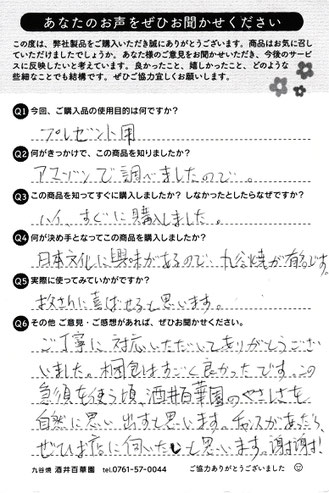 あなたのお声をぜひお聞かせください
この度は、弊社製品をご購入いただき誠にありがとうございます。商品はお気に召し
ていただけましたでしょうか。あなた様のご意見をお聞かせいただき、今後のサービ
スに反映したいと考えています。良かったこと、嬉しかったこと、どのような
些細なことでも結構です。ぜひご協力宜しくお願いします。
Q1 今回、ご購入品の使用目的は何ですか?
プレゼント用
Q2 何がきっかけで、この商品を知りましたか?
アマゾンで調べましたので。
Q3 この商品を知ってすぐに購入しましたか? しなかったとしたらなぜですか?
ハイ、すぐに購入しました。
Q4 何が決め手となってこの商品を購入しましたか?
日本文化に興味があるので、九谷焼が有名です。
Q5 実際に使ってみていかがですか?
お父されに喜ばせると思います。
Q6 その他 ご意見・ご感想があれば、ぜひお聞かせください。
ご丁寧に対応いただいてありがとうござい
ました。梱包はすごく良かったです。この
急須を使う頃、酒井百華園のやさしさを
自然に思い出すと思います。チャンスがあったら、
ぜひお店に伺いたいと思います。謝謝!
九谷焼 酒井百華園 tel.0761-57-0044 ご協力ありがとうございました